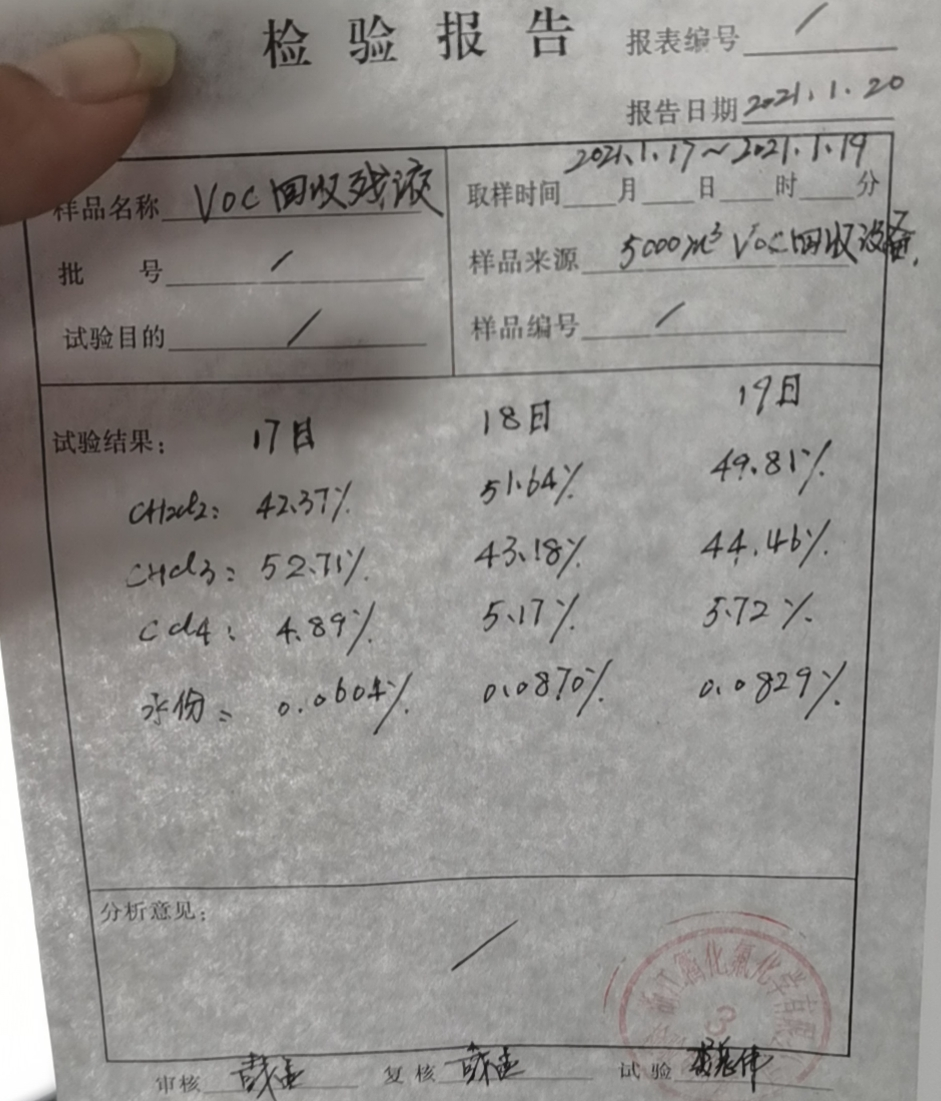 检验报告
报表编号 /
报告日期 2021.1.20
样品名称 VOC回收残液
2021.1.17~2021.1.19
取样时间 月 日 时 分
批 号 /
样品来源 5000m³ VOC回收设备.
试验目的 /
样品编号 /
试验结果: 17日 18日 19日
CH2Cl2: 42.37% 51.64% 49.81%
CHCl3: 52.71% 43.18% 44.46%
CCl4: 4.89% 5.17% 5.72%
水份: 0.0604% 0.0870% 0.0829%
分析意见: /
3
审核 复核 试验